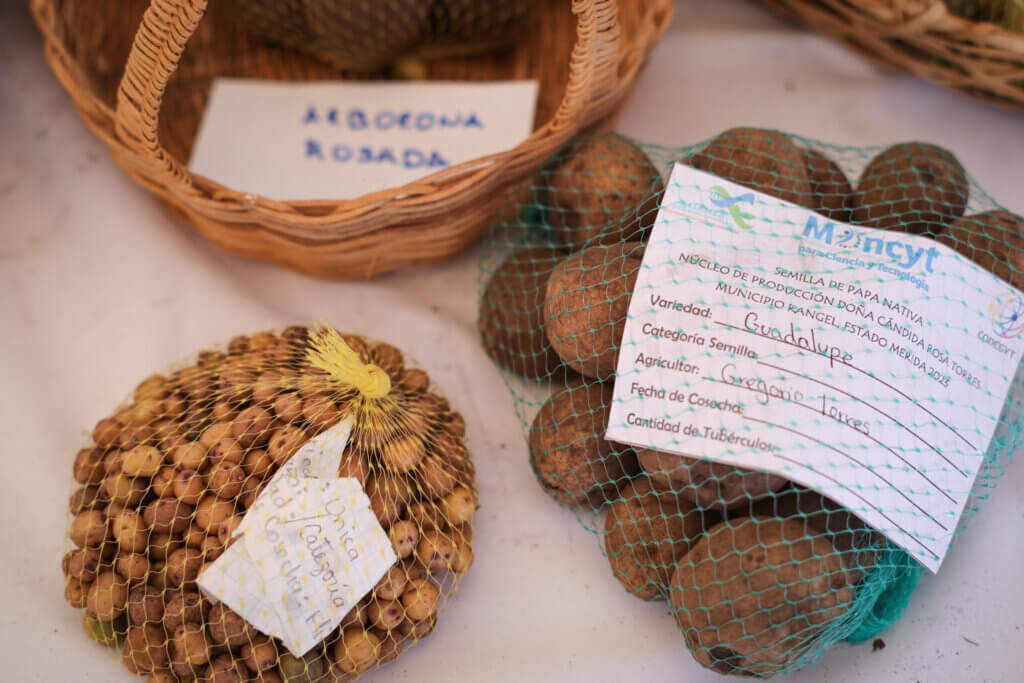 ARBORONA
ROSADA
Mincyt
para Ciencia y Tecnología
SEMILLA DE PAPA NATIVA
NÚCLEO DE PRODUCCIÓN DOÑA CÁNDIDA ROSA TORRES
MUNICIPIO RANGEL, ESTADO MERIDA 2023
Variedad: Guadalupe
Categoría Semilla:
Agricultor: Gregorio Torres
Fecha de Cosecha:
Cantidad de Tubérculos:
CODECYT
Única
/Categoría
Cosecha: